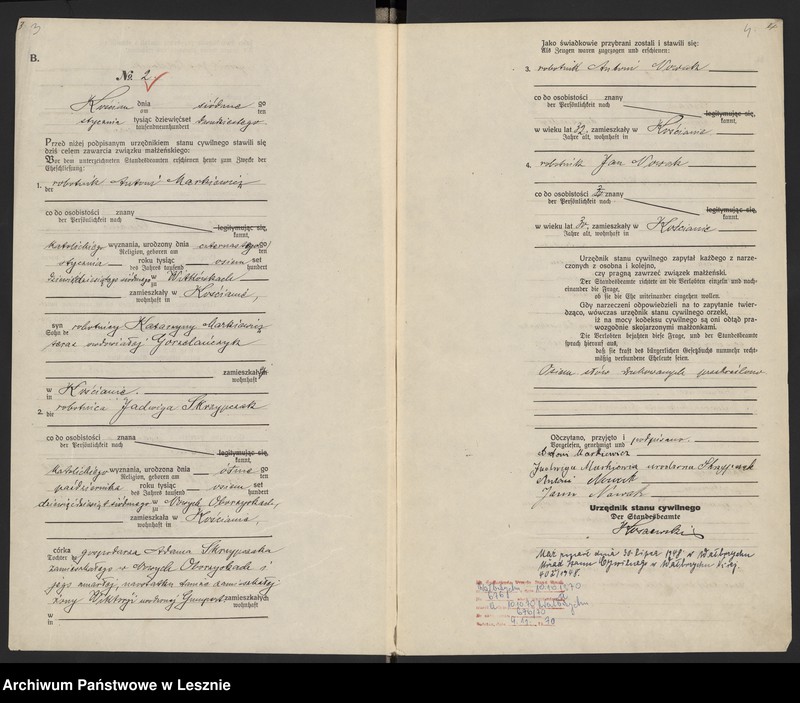 3
B.
No. 2
Kościan dnia siódmego
am ten
stycznia tysiąc dziewięćset dwudziestego.
tausendneunhundert
Przed niżej podpisanym urzędnikiem stanu cywilnego stawili się
dziś celem zawarcia związku małżeńskiego:
Vor dem unterzeichneten Standesbeamten erschienen heute zum Zwecke der
Eheschließung:
1. robotnik Antoni Markiewicz
der
co do osobistości znany
der Persönlichkeit nach
legitymując się,
kannt,
katolickiego wyznania, urodzony dnia czternastego
Religion, geboren am ten
stycznia roku tysiąc osiemset
des Jahres tausend hundert
dziewięćdziesiątego siódmego w Witkówkach
zu
zamieszkały w Kościanie,
wohnhaft in
syn robotnicy Katarzyny Markiewicz
Sohn de
teraz owdowiałej
zamieszkałej
wohnhaft
w Kościanie.
in
2. robotnica Jadwiga Skrzypczak
die
co do osobistości znana
der Persönlichkeit nach
legitymując się,
kannt,
katolickiego wyznania, urodzona dnia ósmego
Religion, geboren am ten
października roku tysiąc osiemset
des Jahres tausend hundert
dziewięćdziesiąt siódmego w Nowych Oborzyskach,
zu
zamieszkała w Kościanie,
wohnhaft in
córka gospodarza Adama Skrzypczaka
Tochter de
zamieszkałego w Nowych Oborzyskach i
jego zmarłej, naostatku tamże zamieszkałej
żony Wiktorji urodzonej zamieszkałych
wohnhaft
w
in
4
Jako świadkowie przybrani zostali i stawili się:
Als Zeugen waren zugezogen und erschienen:
3. robotnik Antoni Nowak
co do osobistości znany
der Persönlichkeit nach
legitymując się,
kannt,
w wieku lat 32, zamieszkały w Kościanie
Jahre alt, wohnhaft in
4. robotnik Jan Nowak
co do osobistości znany
der Persönlichkeit nach
legitymując się,
kannt,
w wieku lat 30, zamieszkały w Kościanie
Jahre alt, wohnhaft in
Urzędnik stanu cywilnego zapytał każdego z narze-
czonych z osobna i kolejno,
czy pragną zawrzeć związek małżeński.
Der Standesbeamte richtete an die Verlobten einzeln und nach-
einander die Frage,
ob sie die Ehe miteinander eingehen wollen.
Gdy narzeczeni odpowiedzieli na to zapytanie twier-
dząco, wówczas urzędnik stanu cywilnego orzekł,
iż na mocy kodeksu cywilnego są oni odtąd pra-
wozgodnie skojarzonymi małżonkami.
Die Verlobten bejahten diese Frage, und der Standesbeamte
sprach hierauf aus,
daß sie kraft des bürgerlichen Gesetzbuchs nunmehr recht-
mäßig verbundene Eheleute seien.
Osiem słów drukowanych przekreślono
Odczytano, przyjęto i podpisano.
Vorgelesen, genehmigt und
Antoni Markiewicz
Jadwiga Markiewicz urodzona Skrzypczak
Antoni Nowak
Jan Nowak
Urzędnik stanu cywilnego
Der Standesbeamte
Mąż zmarł dnia 30 lipca 1948 r. w Wałbrzychu
Urząd Stanu Cywilnego w Wałbrzychu
407/1948.
Archiwum Państwowe w Lesznie